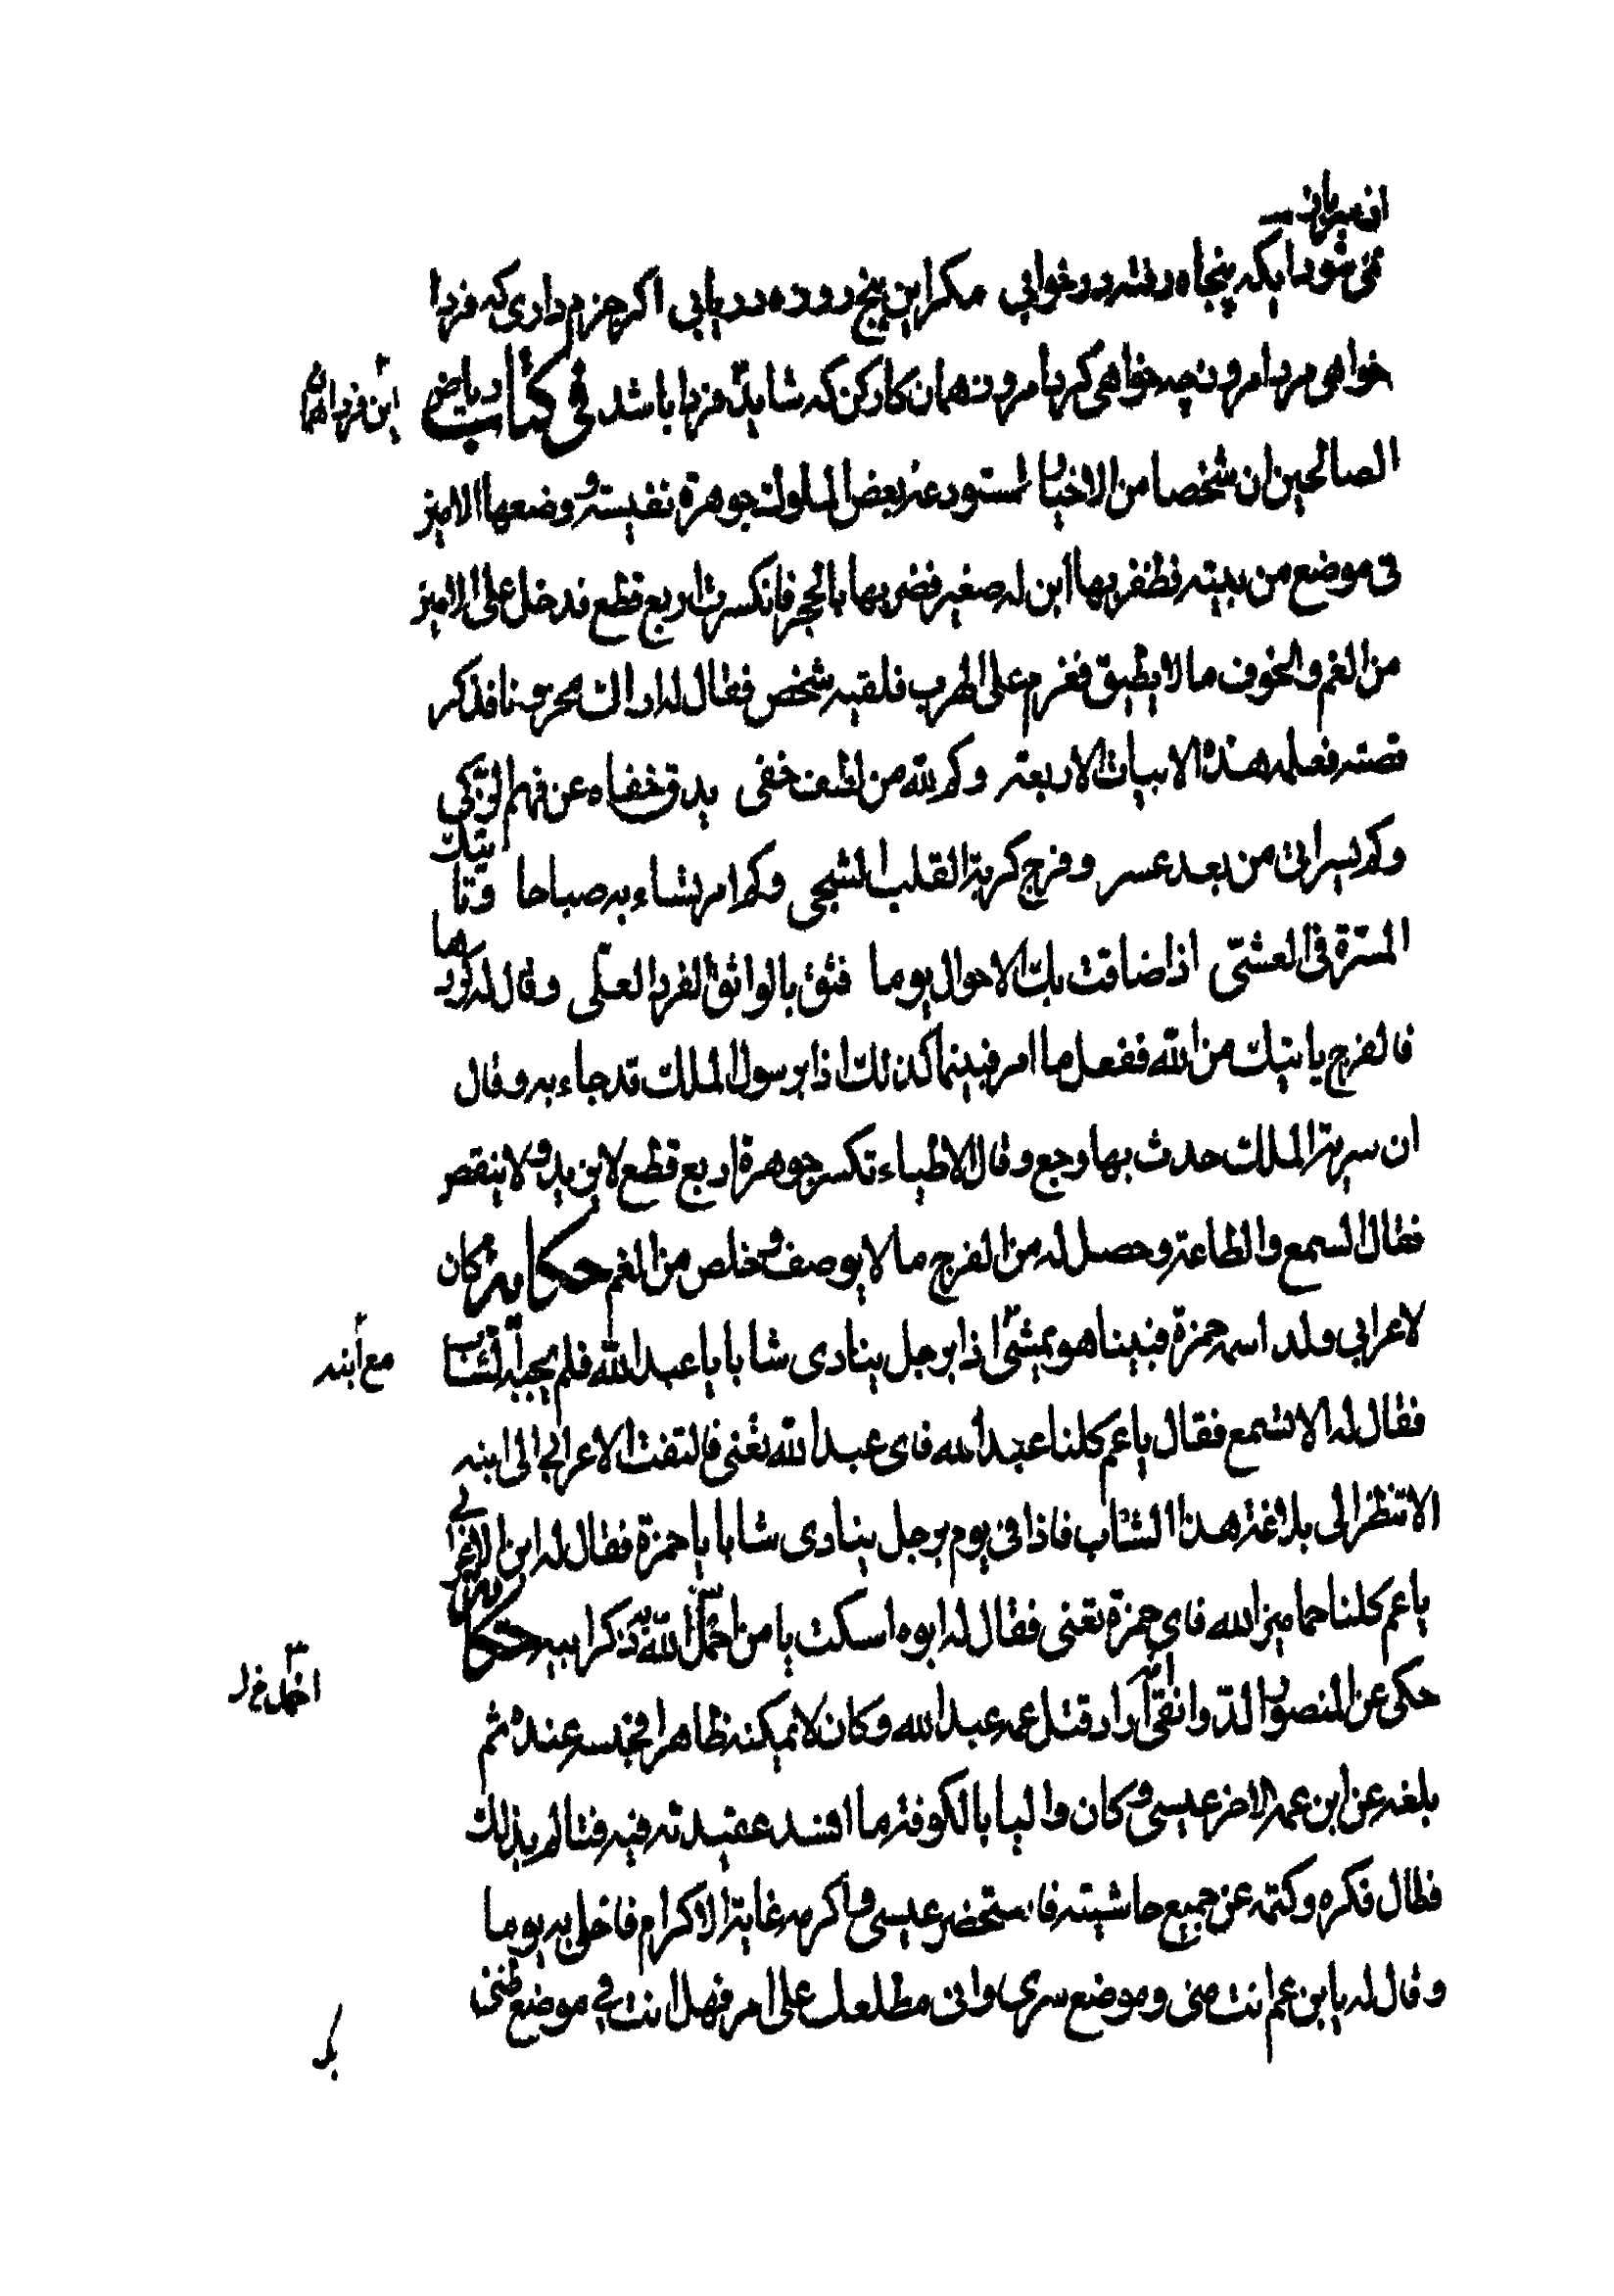 نمی شود ایکه پنجاه رفته در خوابی مکر این پنج روزه دریابی اکر جزم داری که فردا
خواهی مرد امروز چه خواهی کرد امروز همان کار کن که شاید فردا باشد فی کتاب ریاض
الصالحین ان شخصا من الاخیار استودعه بعض الملوک جوهرة نفیسة و وضعها الامیر
فی موضع من بیته فظفر بها ابن له صغیر فضربها بالحجر فانکسرت اربع قطع فدخل علی الامیر
من الغم والخوف ما لا یطیق فعزم علی الهرب فلقیه شخص فقال له اراک محزونا فذکر
قصته فعلمه هذه الابیات الاربعة وکم لله من لطف خفی یدق خفاه عن فهم الزکی
وکم یسر اتی من بعد عسر وفرج کربة القلب الشجی وکم امر تساء به صباحا وتاتیک
المسرة فی العشی اذا ضاقت بک الاحوال یوما فثق بالواثق الفرد العلی وقال له کررها
فالفرج یاتیک من الله ففعل ما امر فبینما کذلک اذا برسول الملک قد جاء به وقال
ان سریة الملک حدث بها وجع وقال الاطباء تکسر جوهرة اربع قطع لا یزید و لا ینقص
فقال السمع والطاعة وحصل له من الفرج ما لا یوصف و خلص من الغم حکایة کان
لاعرابی ولد اسمه حمزة فبینا هو یمشی اذا برجل ینادی شابا یا عبد الله فلم یجبه الشاب
مع ابنه
فقال له الا تسمع فقال یا عم کلنا عبد الله فای عبد الله تعنی فالتفت الاعرابی الی ابنه
الا تنظر الی بلاغة هذا الشاب فاذا فی یوم برجل ینادی شابا یا حمزة فقال له ابن الاعرابی
یا عم کلنا حمامیز الله فای حمزة تعنی فقال له ابوه اسکت یا من اخمل الله به ذکر ابیه حکایة
اخمل
حکی عن المنصور الدوانقی انه اراد قتل عمه عبد الله وکان لا یمکنه ظاهرا فحبسه عنده ثم
بلغه عن ابن عمه الاخر عیسی و کان والیا بالکوفة ما افسد عقیدته فیه فتالم بذلک
فطال فکره وکتمه عن جمیع حاشیته فاستحضر عیسی و اکرمه غایة الاکرام فاخلی به یوما
وقال له یا بن عم انت منی وموضع سری وانی مطلعک علی امر فهل انت فی موضع ظنی